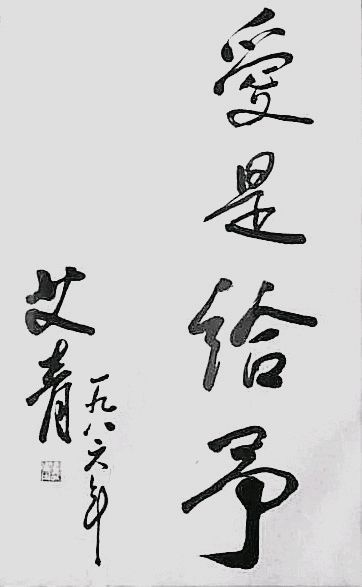 愛是给予
艾青
一九八六年